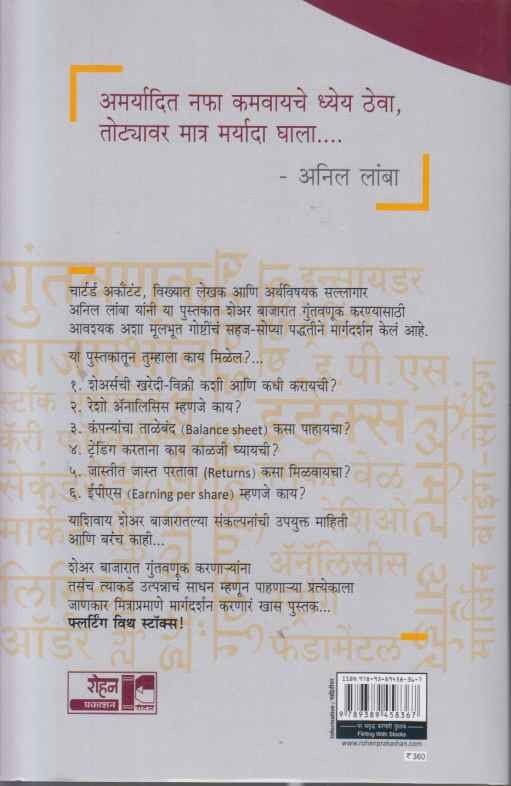 अमर्यादित नफा कमवायचे ध्येय ठेवा,
तोट्यावर मात्र मर्यादा घाला....
- अनिल लांबा
चार्टर्ड अकौंटंट, विख्यात लेखक आणि अर्थविषयक सल्लागार
अनिल लांबा यांनी या पुस्तकात शेअर बाजारात गुंतवणूक करण्यासाठी
आवश्यक अशा मूलभूत गोष्टींचं सहज-सोप्या पद्धतीने मार्गदर्शन केलं आहे.
या पुस्तकातून तुम्हाला काय मिळेल?...
१. शेअर्सची खरेदी-विक्री कशी आणि कधी करायची?
२. रेशो अ‍ॅनालिसिस म्हणजे काय?
३. कंपन्यांचा ताळेबंद (Balance sheet) कसा पाहायचा?
४. ट्रेडिंग करताना काय काळजी घ्यायची?
५. जास्तीत जास्त परतावा (Returns) कसा मिळवायचा?
६. ईपीएस (Earning per share) म्हणजे काय?
याशिवाय शेअर बाजारातल्या संकल्पनांची उपयुक्त माहिती
आणि बरंच काही...
शेअर बाजारात गुंतवणूक करणाऱ्यांना
तसंच त्याकडे उत्पन्नाचं साधन म्हणून पाहणाऱ्या प्रत्येकाला
जाणकार मित्राप्रमाणे मार्गदर्शन करणारं खास पुस्तक...
फ्लर्टिंग विथ स्टॉक्स!
रोहन
प्रकाशन
ISBN 978-93-89458-36-7
9 789389 458367
Flirting With Stocks
www.rohanprakashan.com
₹ 360